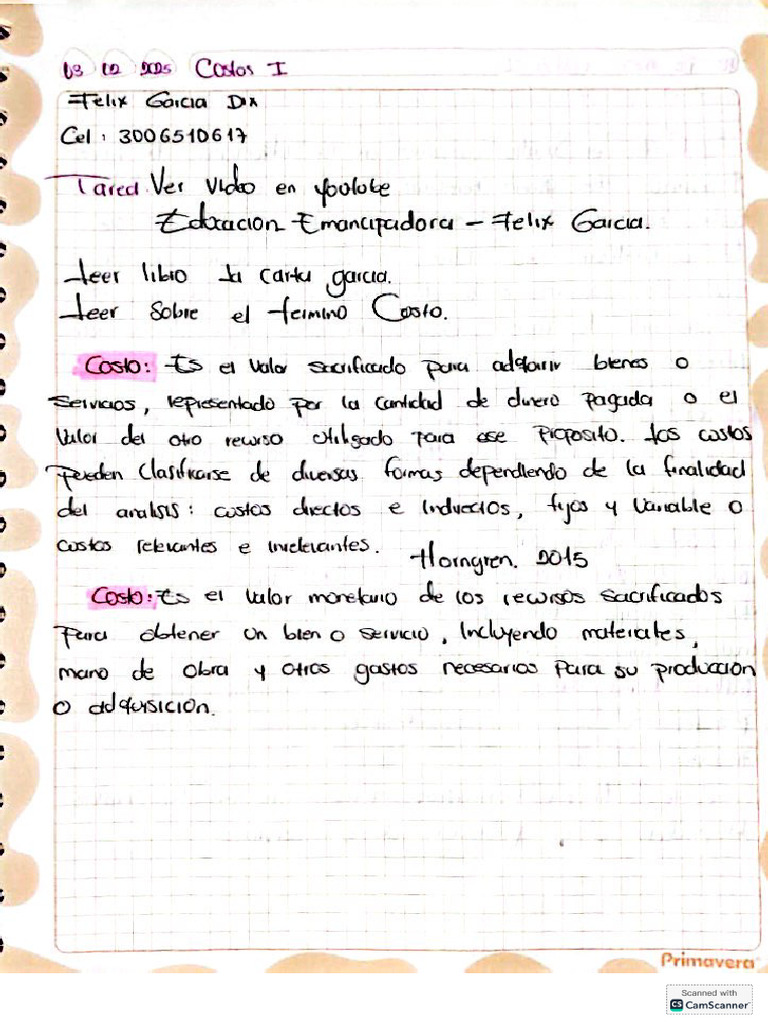 03 02 2025 Costos I
Felix Garcia Dix
Cel: 3006510617
Tarea: Ver video en youtube
Educacion Emancipadora - Felix Garcia.
Leer libro La carta garcia.
Leer sobre el termino Costo.
Costo: Es el valor sacrificado para adquirir bienes o
servicios, representado por la cantidad de dinero pagada o el
valor del otro recurso utilizado para ese proposito. Los costos
pueden clasificarse de diversas formas dependiendo de la finalidad
del analisis: costos directos e indirectos, fijos y variable o
costos relevantes e irrelevantes. Horngren. 2015
Costo: Es el valor monetario de los recursos sacrificados
para obtener un bien o servicio, incluyendo materiales,
mano de obra y otros gastos necesarios para su producción
o adquisicion.
Primavera
Scanned with
CS CamScanner